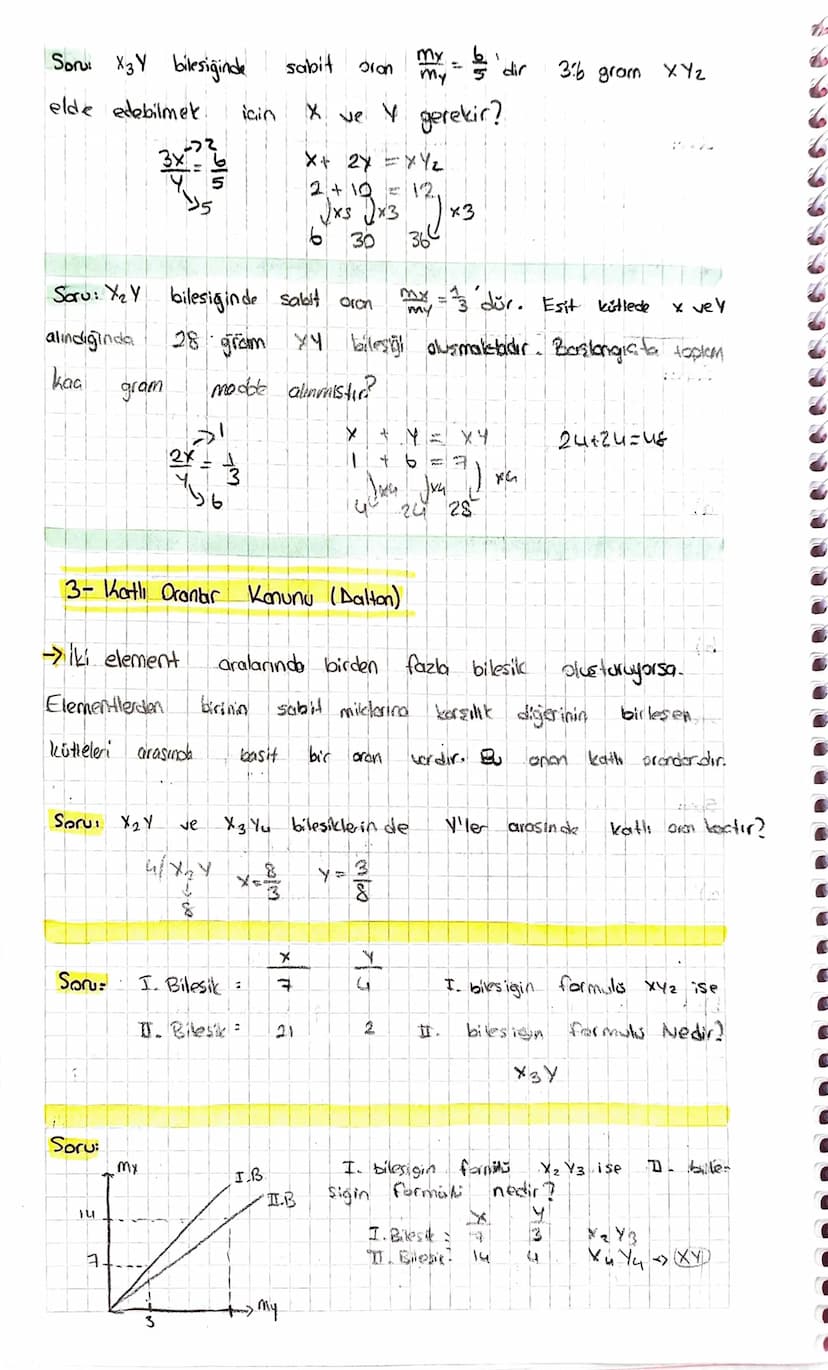 Soru: X₃Y bileşiğinde sabit oran mx/my = 6/5 'dir 36 gram XY₂
elde edebilmek için X ve Y gerekir?
3x/y = 6/5 →2 →5
X + 2Y = XY₂
2 + 10 = 12
x3 x3 x3
6 30 36
Soru: X₂Y bileşiğinde sabit oran mx/my = 1/3 'dür. Eşit kütlede x ve Y
alındığında 28 gram XY bileşiği oluşmaktadır. Başlangıçta toplam
kaç gram madde alınmıştır?
2x/y = 1/3 →1 →6
X + Y = XY
1 + 6 = 7
x4 x4 x4
4 24 28
24+24=48
3- Katlı Oranlar Konunu (Dalton)
→ İki element aralarında birden fazla bileşik oluşturuyorsa.
Elementlerden birinin sabit miktarına karşılık diğerinin birleşen
kütleleri arasında basit bir oran vardır. Bu oran katlı oranlardır.
Soru: X₂Y ve X₃Y₄ bileşiklerinde Y'ler arasında katlı oran kaçtır?
4/X₂Y
↓
8
X=8/3 Y=3/8
X Y
Soru: I. Bileşik : 7 4 I. bileşiğin formülü XY₂ ise
II. Bileşik : 21 2 II. bileşiğin formülü Nedir?
X₃Y
Soru:
mx
I.B
II.B
14
7
3
my
I. bileşiğin formülü X₂Y₃ ise II. bile-
şiğin formülü nedir?
X Y
I. Bileşik : 7 3 X₂Y₃
II. Bileşik: 14 4 X₄Y₄ → XY